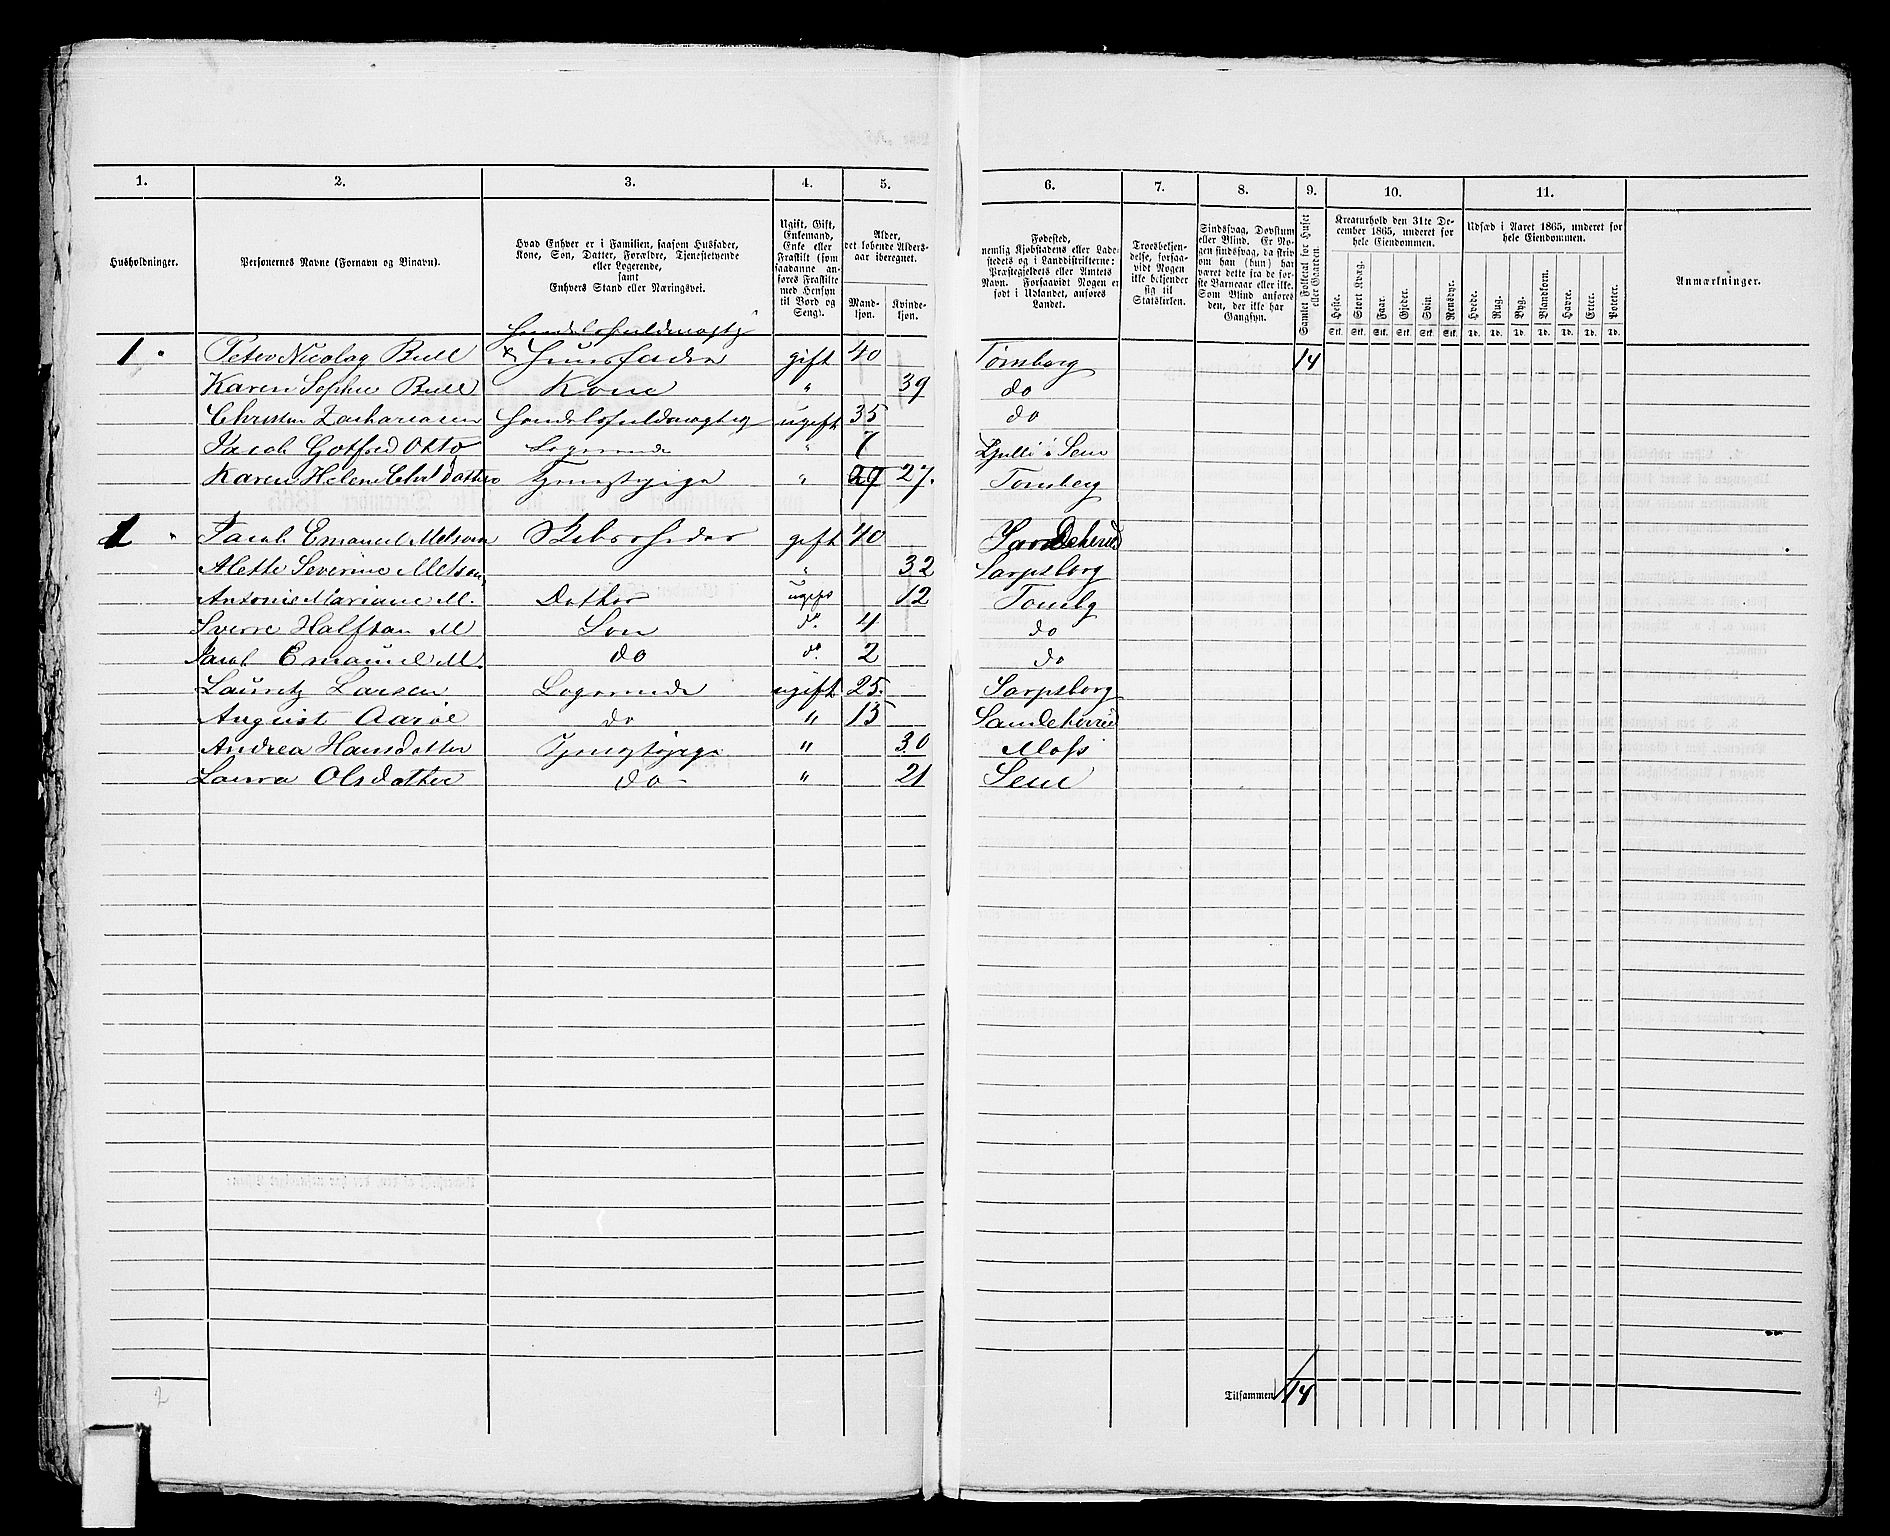 1. 2. 3. 4. 5. 6. 7. 8. 9. 10. 11.
Husholdninger.
Personernes Navne (Fornavn og Binavn).
Hvad Enhver er i Familien, saasom Husfader,
Kone, Søn, Datter, Forældre, Tjenestetyende
eller Logerende,
samt
Enhvers Stand eller Næringsvei.
Ugift, Gift,
Enkemand,
Enke eller
Fraskilt (som
saadanne an-
føres Fraskilte
med Hensyn
til Bord og
Seng).
Alder,
det løbende Alders-
aar iberegnet.
Mand-
kjøn.
Kvinde-
kjøn.
Fødested,
nemlig Kjøbstadens eller Lade-
stedets og i Landdistrikterne:
Præstegjeldets eller Amtets
Navn. Forsaavidt Nogen er
født i Udlandet, anføres
Landet.
Troesbekjen-
delse, forsaa-
vidt Nogen
ikke bekjender
sig til
Statskirken.
Sindssvag, Døvstum
eller Blind. Er No-
gen sindssvag, da skriv
om han (hun) har
været dette fra de før-
ste Barneaar eller ikke.
Som Blind anføres
den, der ikke har
Gangsyn.
Samlet Folketal for Huset
eller Gaarden.
Kreaturhold den 31te De-
cember 1865, underet for
hele Eiendommen.
Heste. Stort Kvæg. Faar. Gjeder. Svin. Rensdyr.
Stk. Stk. Stk. Stk. Stk. Stk.
Udsæd i Aaret 1865, underet for
hele Eiendommen.
Hvede. Rug. Byg. Blandkorn. Havre. Erter. Poteter.
Td. Td. Td. Td. Td. Td. Td.
Anmærkninger.
Handelsfuldmægtig
1 Peter Nicolay Bull Huusfader gift 40 Tønsberg 14
Karen Sophie Bull Kone " 39 do
Christen Zachariasen Handelsfuldmægtig ugift 35 do
Jacob Gotfred Otto Logerende " 7 i Sem
Karen Helene Chrsdatter Tjenstepige " 27. Tønsberg
Jacob Emanuel Melsom Skibsrheder gift 40 Sandeherred
Alette Severine Melsom " 32 Sarpsborg
Antonie Mariane M. Datter ugift 12 Tønsbg
Sverre Halfdan M Søn do. 4 do
Jacob Emanuel M. do do. 2 do
Lauritz Larsen Logerende ugift 25. Sarpsborg
August Aarøe do " 15 Sandeherred
Andrea Hansdatter Tjenstepige " 30 Moss
Laura Olsdatter do " 21 Sem
2
Tilsammen 14